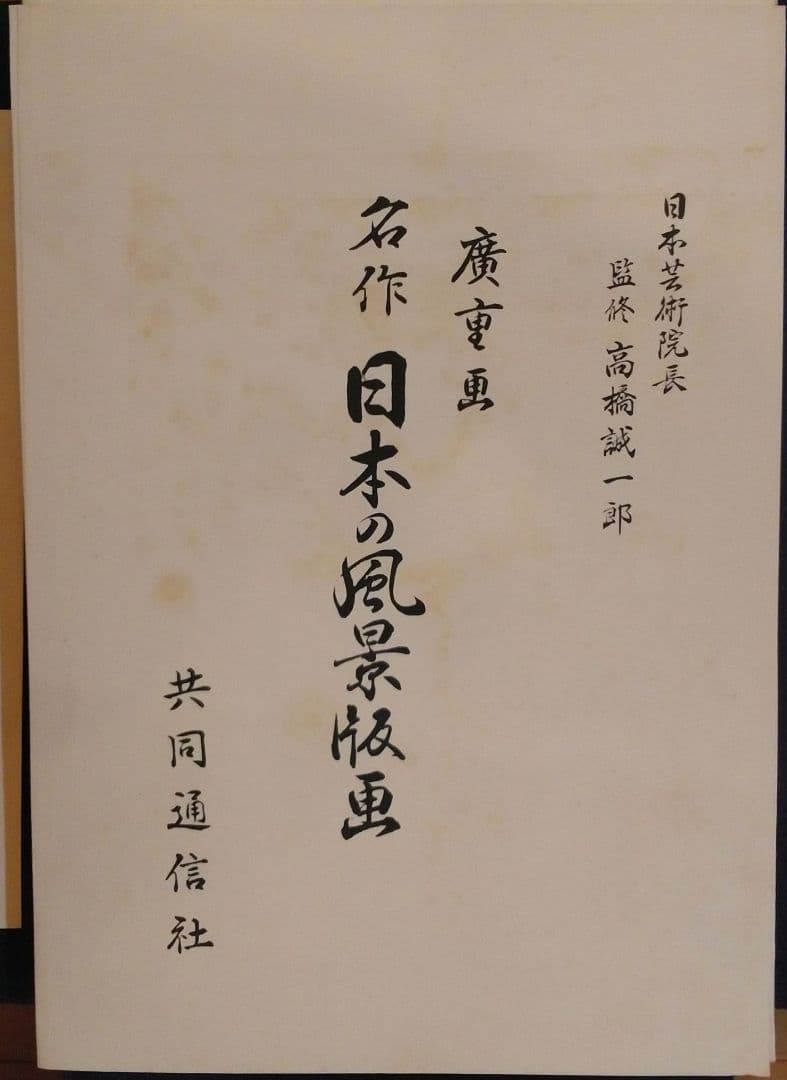 日本芸術院長
監修 高橋誠一郎
廣重画
名作 日本の風景版画
共同通信社